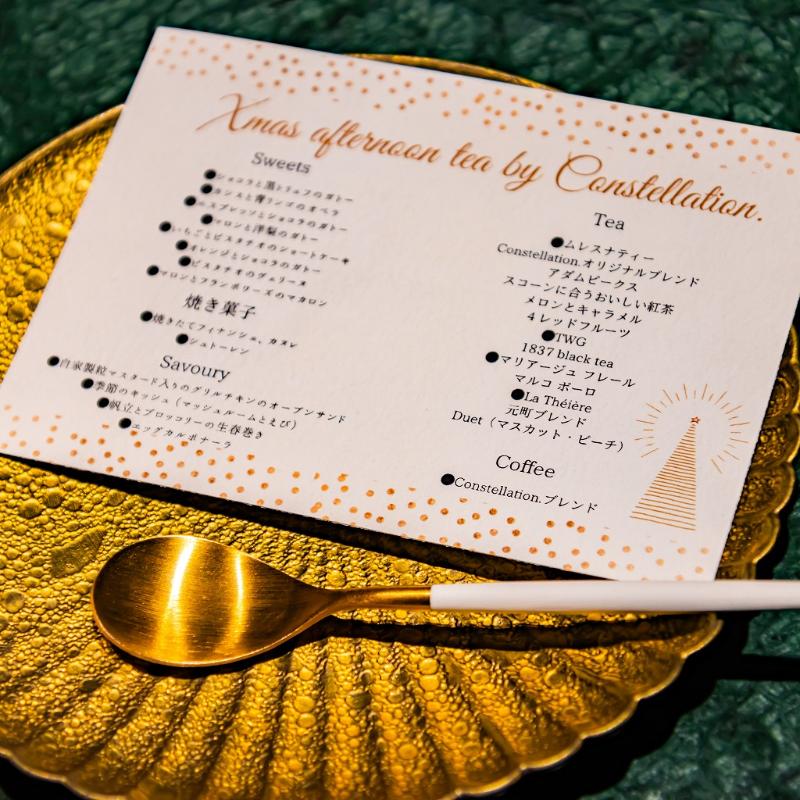 Xmas afternoon tea by Constellation.
Sweets
●ショコラと黒トリュフのガトー
●カシスと青リンゴのオペラ
●エスプレッソとショコラのガトー
●マロンと洋梨のガトー
●いちごとピスタチオのショートケーキ
●オレンジとショコラのガトー
●ピスタチオのヴェリーヌ
●マロンとフランボワーズのマカロン
焼き菓子
●焼きたてフィナンシェ、カヌレ
●シュトーレン
Savoury
●自家製粒マスタード入りのグリルチキンのオープンサンド
●季節のキッシュ（マッシュルームとえび）
●帆立とブロッコリーの生春巻き
●エッグカルボナーラ
Tea
●ムレスナティー
Constellation.オリジナルブレンド
アダムピークス
スコーンに合うおいしい紅茶
メロンとキャラメル
4レッドフルーツ
●TWG
1837 black tea
●マリアージュ フレール
マルコ ポーロ
●La Théière
元町ブレンド
Duet（マスカット・ピーチ）
Coffee
●Constellation.ブレンド